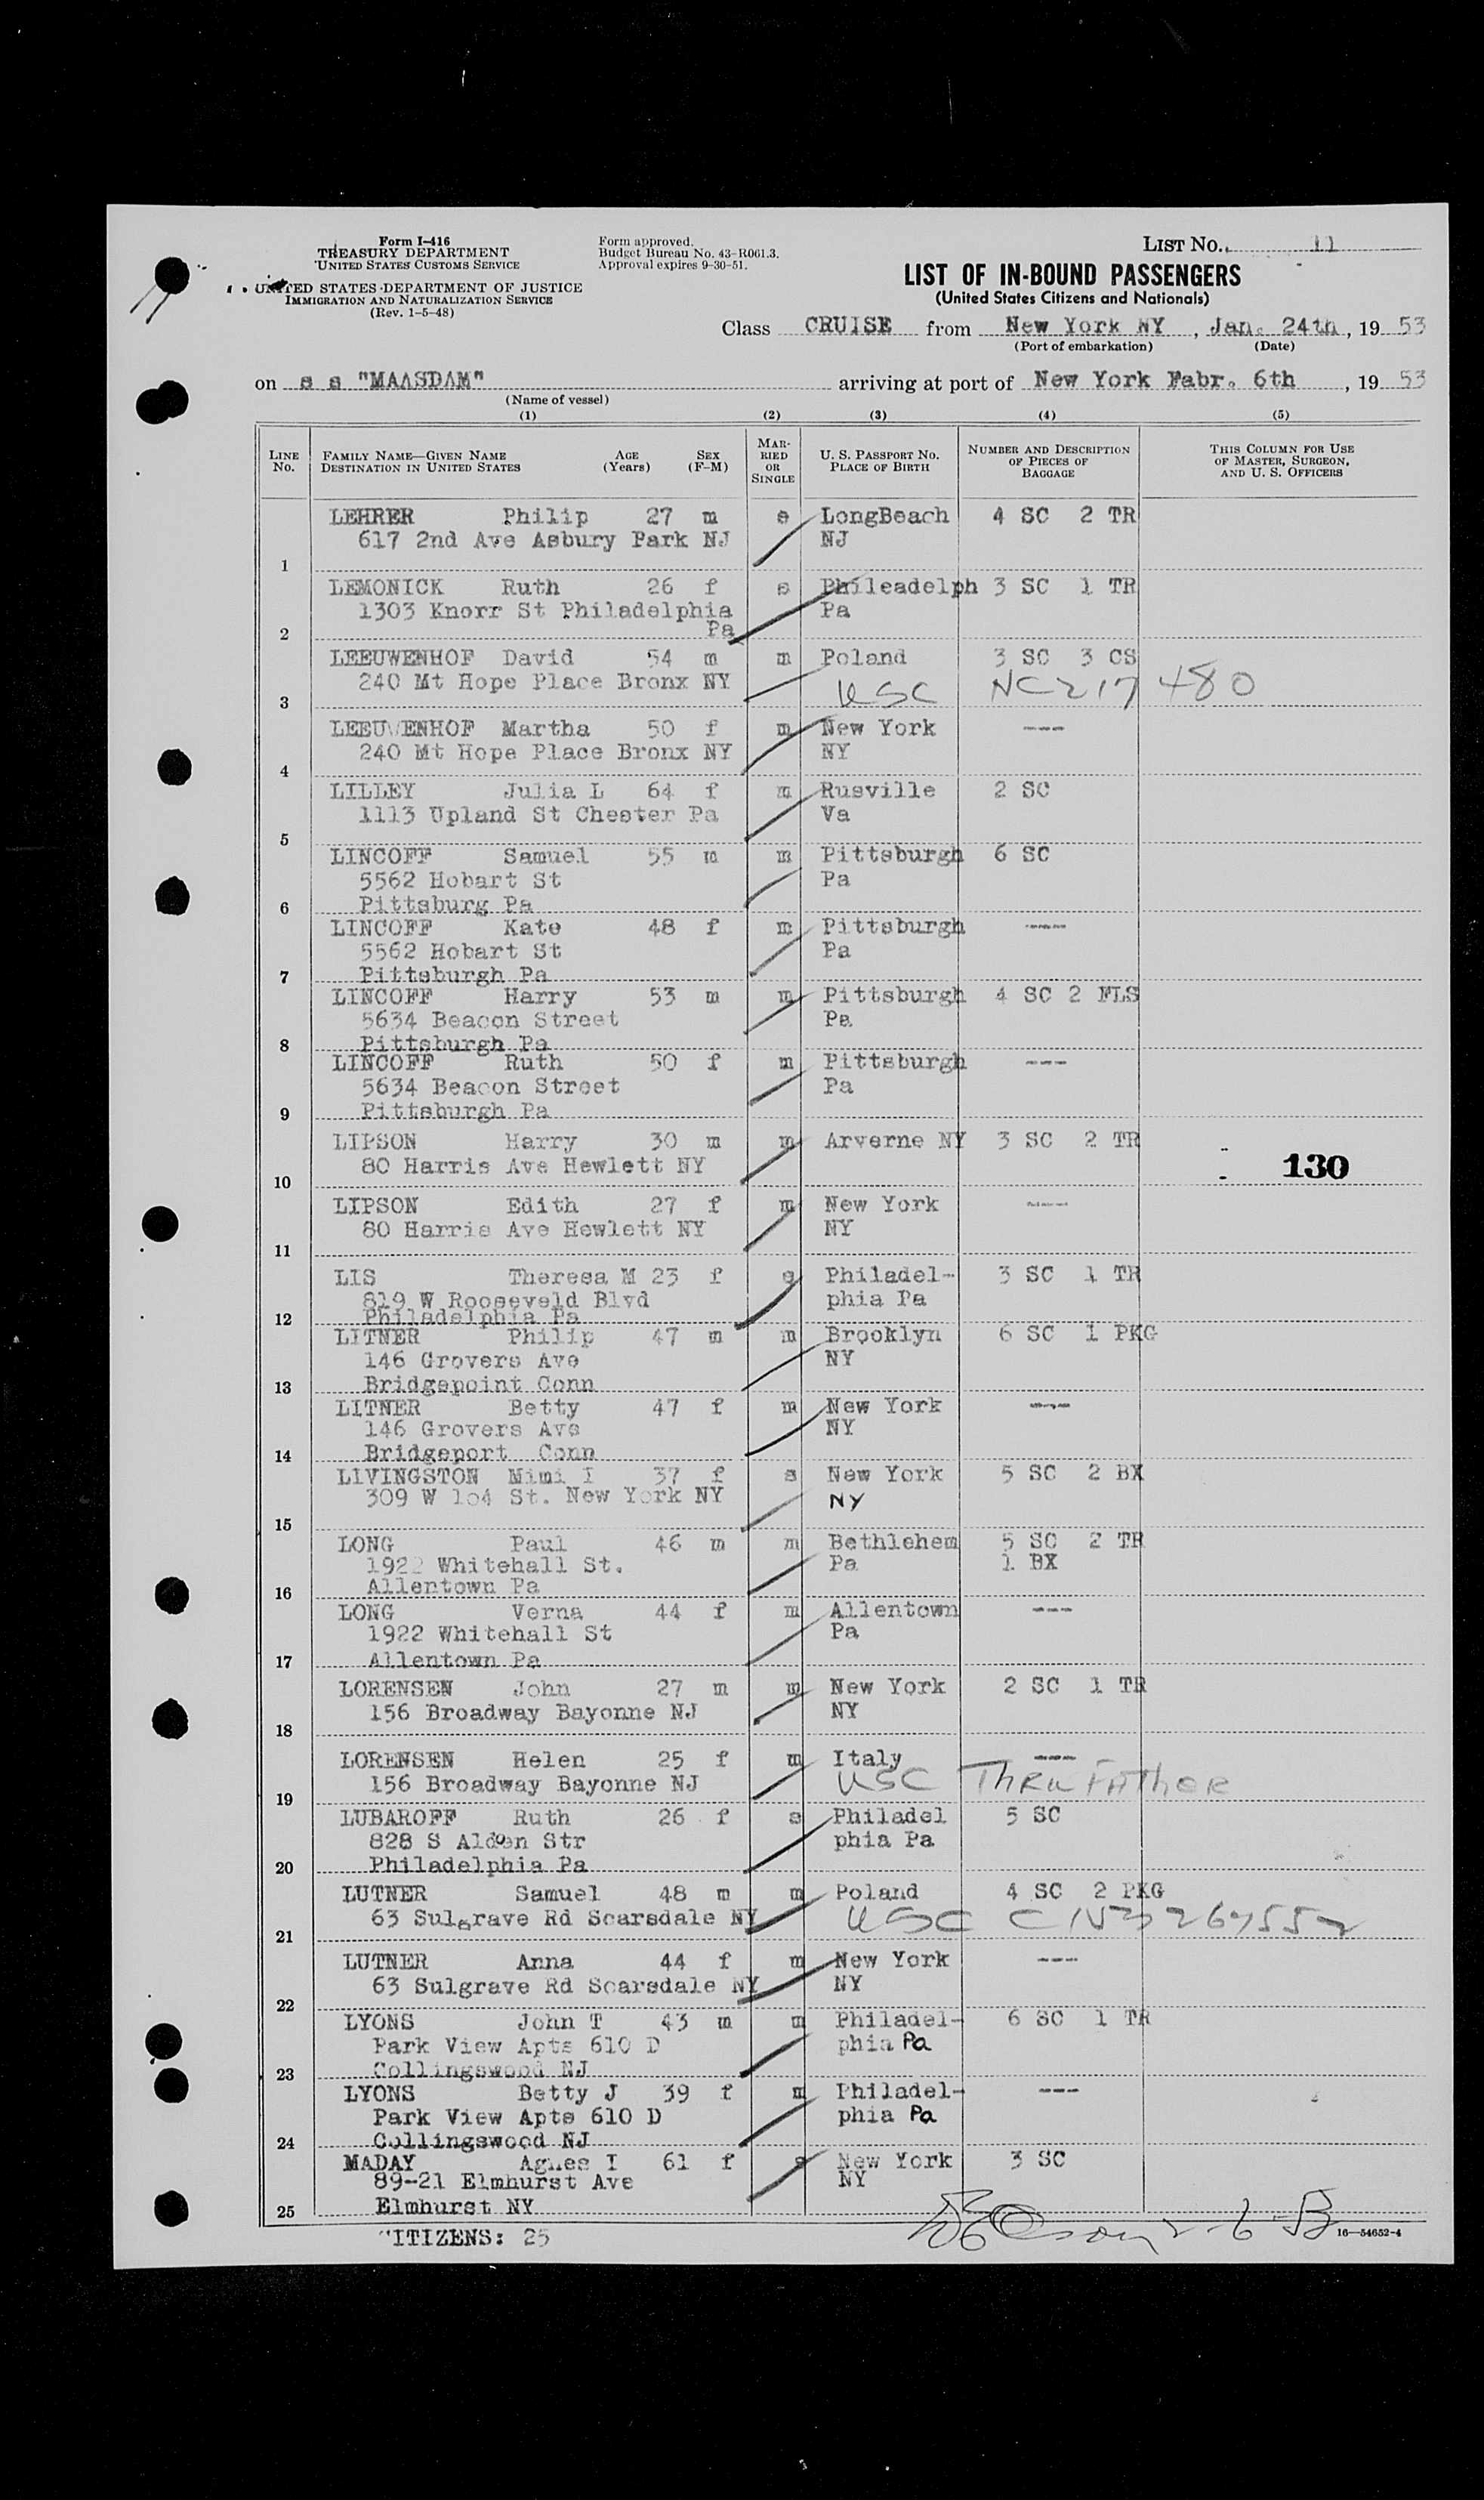 Form I-416
TREASURY DEPARTMENT
UNITED STATES CUSTOMS SERVICE
UNITED STATES DEPARTMENT OF JUSTICE
IMMIGRATION AND NATURALIZATION SERVICE
(Rev. 1-5-48)
Form approved.
Budget Bureau No. 43-R061.3.
Approval expires 9-30-51.
LIST NO. 11
LIST OF IN-BOUND PASSENGERS
(United States Citizens and Nationals)
Class CRUISE from New York NY, Jan. 24th, 19 53
(Port of embarkation) (Date)
on s s "MAASDAM" arriving at port of New York Fabr. 6th, 19 53
(Name of vessel)
(1) (2) (3) (4) (5)
LINE No. FAMILY NAME—GIVEN NAME DESTINATION IN UNITED STATES AGE (Years) SEX (F-M) MARRIED OR SINGLE U. S. PASSPORT NO. PLACE OF BIRTH NUMBER AND DESCRIPTION OF PIECES OF BAGGAGE THIS COLUMN FOR USE OF MASTER, SURGEON, AND U. S. OFFICERS
LEHRER Philip 27 m s LongBeach 4 SC 2 TR
617 2nd Ave Asbury Park NJ NJ
1
LEMONICK Ruth 26 f s Phileadelph 3 SC 1 TR
1303 Knorr St Philadelphia Pa
Pa
2
LEEUWENHOF David 54 m m Poland 3 SC 3 CS
240 Mt Hope Place Bronx NY USC NC 217 480
3
LEEUWENHOF Martha 50 f m New York ---
240 Mt Hope Place Bronx NY NY
4
LILLEY Julia L 64 f m Rusville 2 SC
1113 Upland St Chester Pa Va
5
LINCOFF Samuel 55 m m Pittsburgh 6 SC
5562 Hobart St Pa
6 Pittsburg Pa
LINCOFF Kate 48 f m Pittsburgh ----
5562 Hobart St Pa
7 Pittsburgh Pa
LINCOFF Harry 53 m m Pittsburgh 4 SC 2 FLS
5634 Beacon Street Pa
8 Pittsburgh Pa
LINCOFF Ruth 50 f m Pittsburgh ---
5634 Beacon Street Pa
9 Pittsburgh Pa
LIPSON Harry 30 m m Arverne NY 3 SC 2 TR
80 Harris Ave Hewlett NY 130
10
LIPSON Edith 27 f m New York ----
80 Harris Ave Hewlett NY NY
11
LIS Theresa M 23 f s Philadel- 3 SC 1 TR
819 W Rooseveld Blvd phia Pa
12 Philadelphia Pa
LITNER Philip 47 m m Brooklyn 6 SC 1 PKG
146 Grovers Ave NY
13 Bridgepoint Conn
LITNER Betty 47 f m New York ----
146 Grovers Ave NY
14 Bridgeport Conn
LIVINGSTON Mimi I 37 f s New York 5 SC 2 BX
309 W 104 St. New York NY NY
15
LONG Paul 46 m m Bethlehem 5 SC 2 TR
1922 Whitehall St. Pa 1 BX
16 Allentown Pa
LONG Verna 44 f m Allentown ---
1922 Whitehall St Pa
17 Allentown Pa
LORENSEN John 27 m m New York 2 SC 1 TR
156 Broadway Bayonne NJ NY
18
LORENSEN Helen 25 f m Italy ---
156 Broadway Bayonne NJ USC THRU FATHER
19
LUBAROFF Ruth 26 f s Philadel 5 SC
828 S Alden Str phia Pa
20 Philadelphia Pa
LUTNER Samuel 48 m m Poland 4 SC 2 PKG
63 Sulgrave Rd Scarsdale NY USC
21
LUTNER Anna 44 f m New York ---
63 Sulgrave Rd Scarsdale NY NY
22
LYONS John T 43 m m Philadel- 6 SC 1 TR
Park View Apts 610 D phia Pa
23 Collingswood NJ
LYONS Betty J 39 f m Philadel- ---
Park View Apts 610 D phia Pa
24 Collingswood NJ
MADAY Agnes I 61 f s New York 3 SC
89-21 Elmhurst Ave NY
25 Elmhurst NY
ITIZENS: 25
16—54652-4